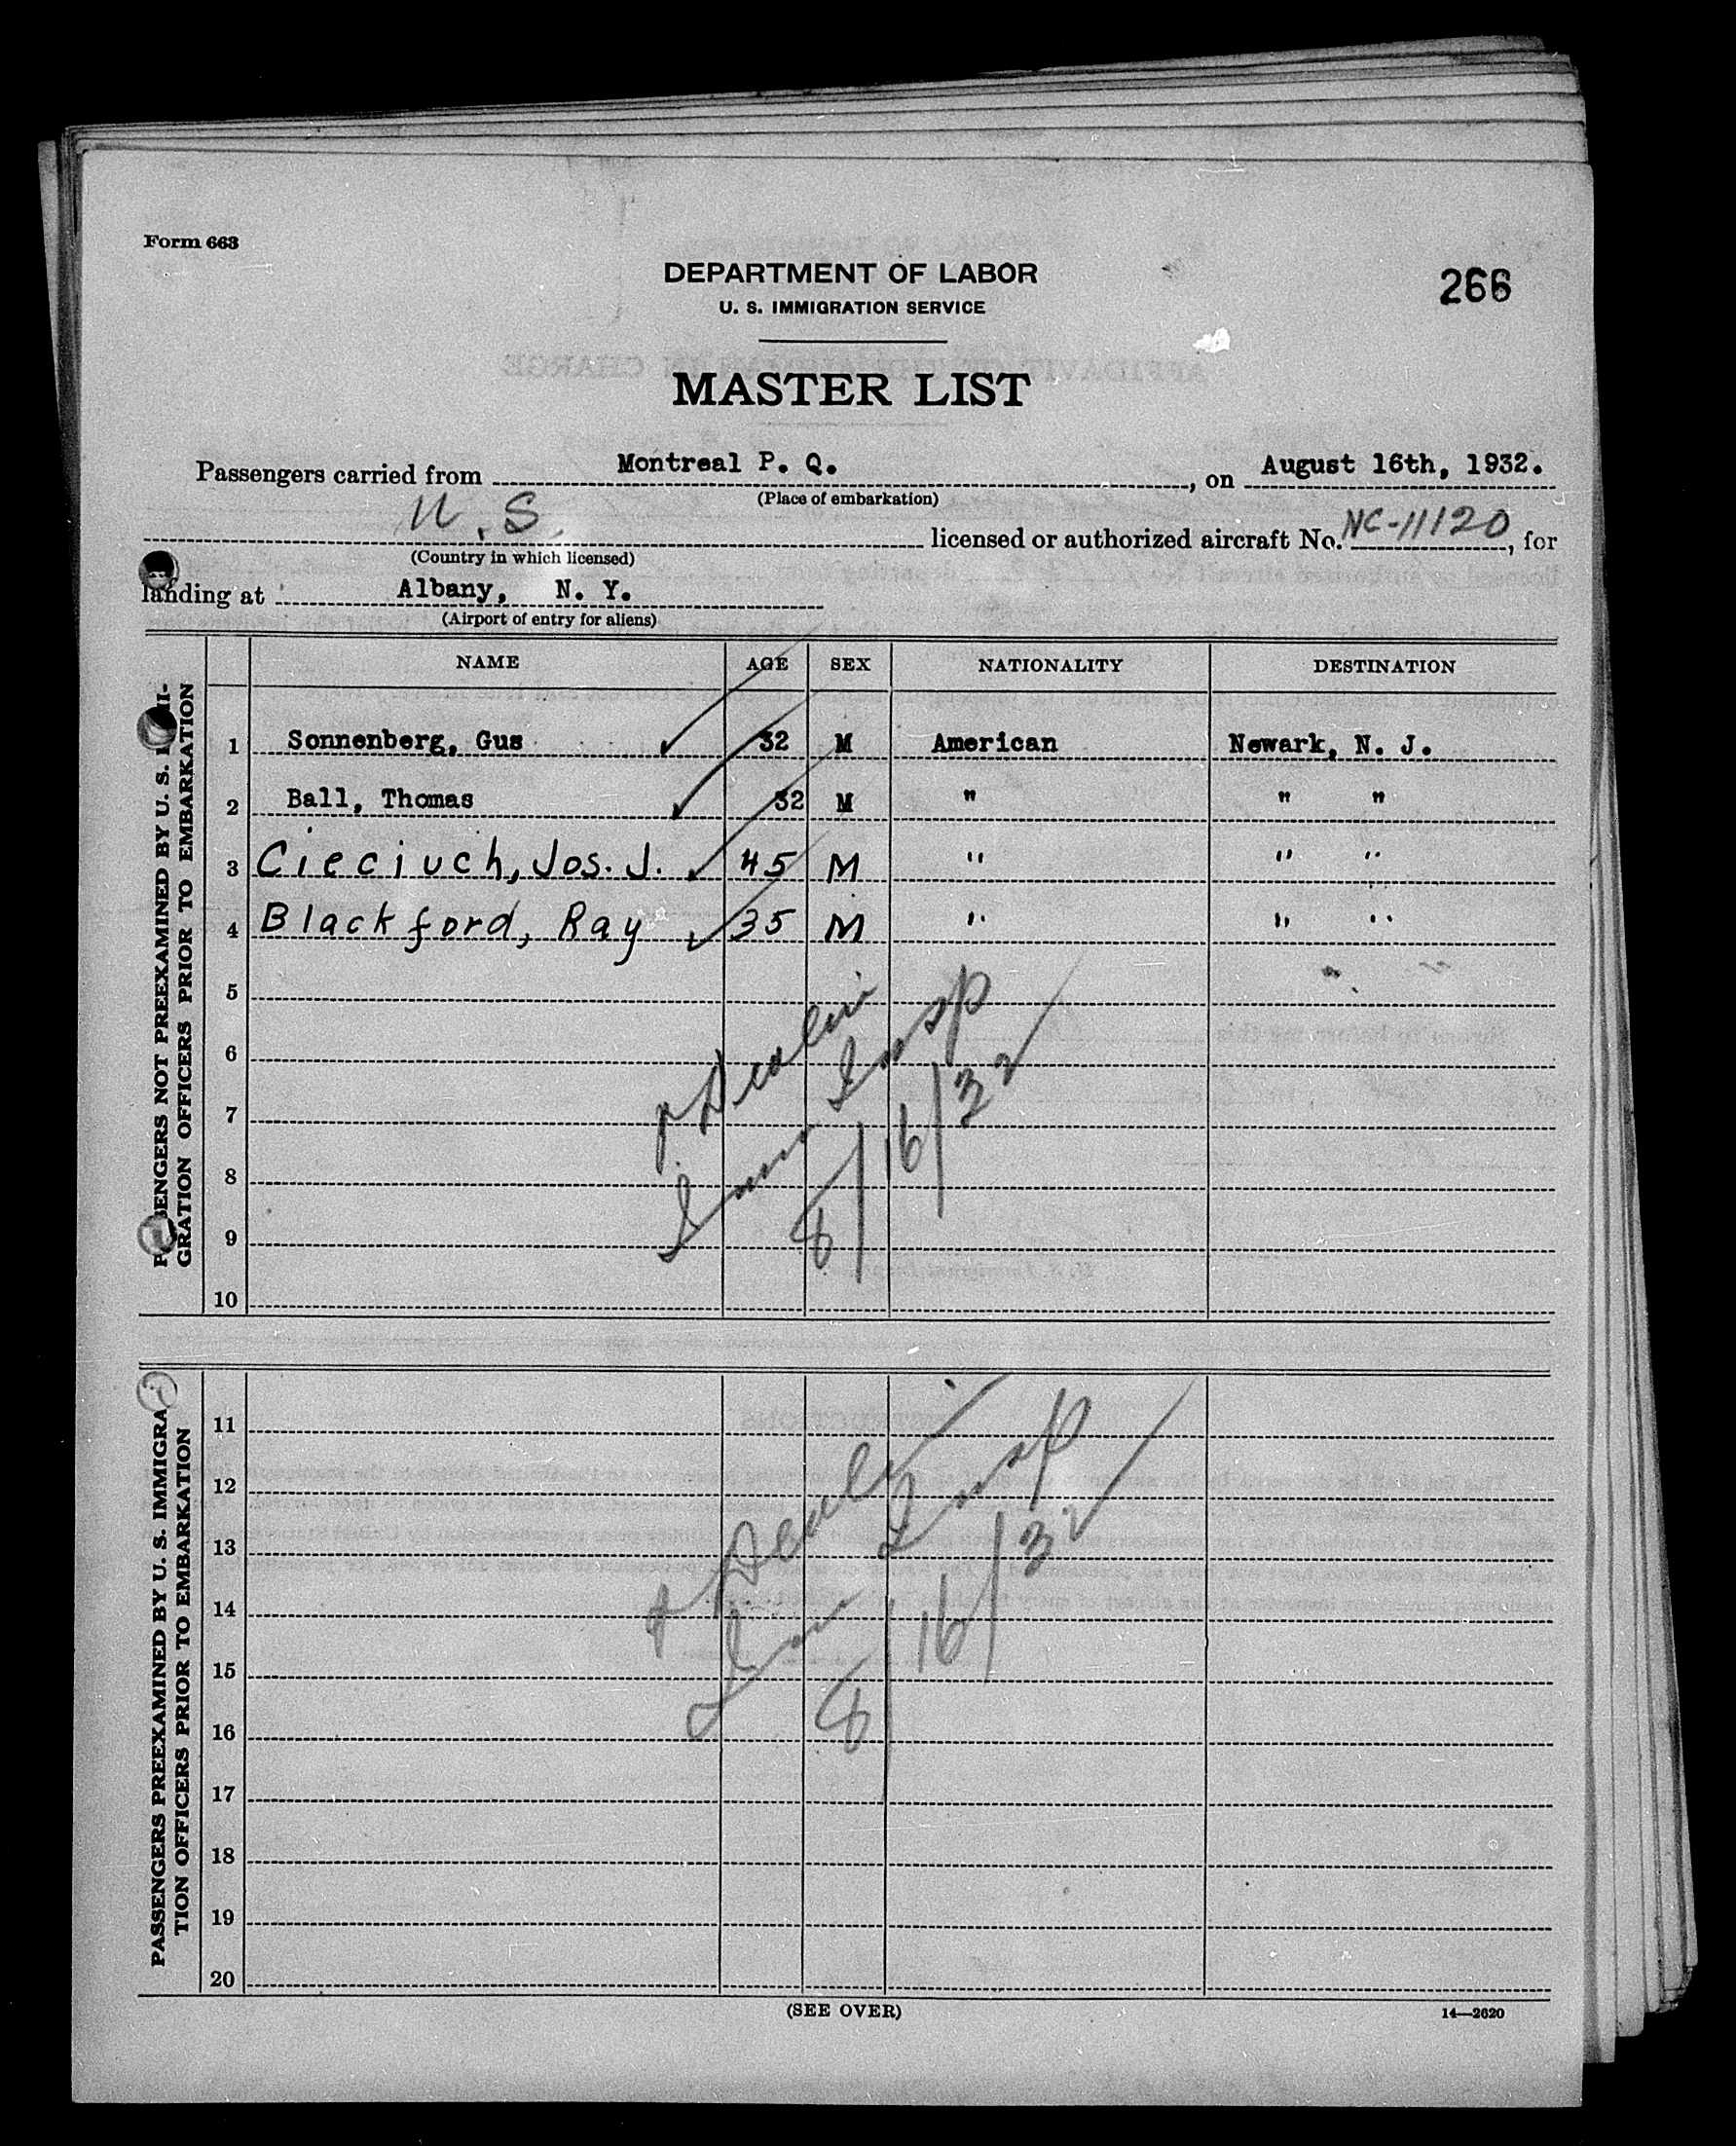 Form 663
DEPARTMENT OF LABOR
U. S. IMMIGRATION SERVICE
266
MASTER LIST
Passengers carried from Montreal P. Q., on August 16th, 1932.
(Place of embarkation)
U. S. licensed or authorized aircraft No. NC-11120, for
(Country in which licensed)
landing at Albany, N. Y.
(Airport of entry for aliens)
NAME AGE SEX NATIONALITY DESTINATION
PASSENGERS NOT PREEXAMINED BY U. S. IMMI-
GRATION OFFICERS PRIOR TO EMBARKATION
1 Sonnenberg, Gus 32 M American Newark, N. J.
2 Ball, Thomas 32 M " " "
3 Cieciuch, Jos. J. 45 M " " "
4 Blackford, Ray 35 M " " "
5
6
7
8
9
10
Imm Insp
8/16/32
PASSENGERS PREEXAMINED BY U. S. IMMIGRA-
TION OFFICERS PRIOR TO EMBARKATION
11
12
13
14
15
16
17
18
19
20
Imm Insp
8/16/32
(SEE OVER)
14—2620